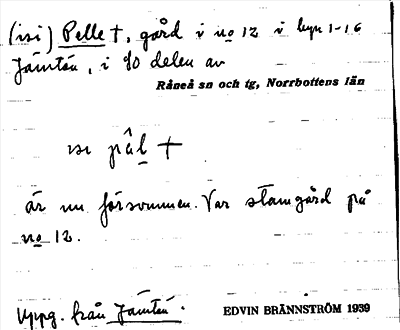 (isi) Pelle †, gård i no 12 i byn 1-16
Jämtön, i sö delen av
Råneå sn och tg, Norrbottens län
isi pâl †
är nu försvunnen. Var stamgård på
no 12.
Uppg. från Jämtön.
EDVIN BRÄNNSTRÖM 1939